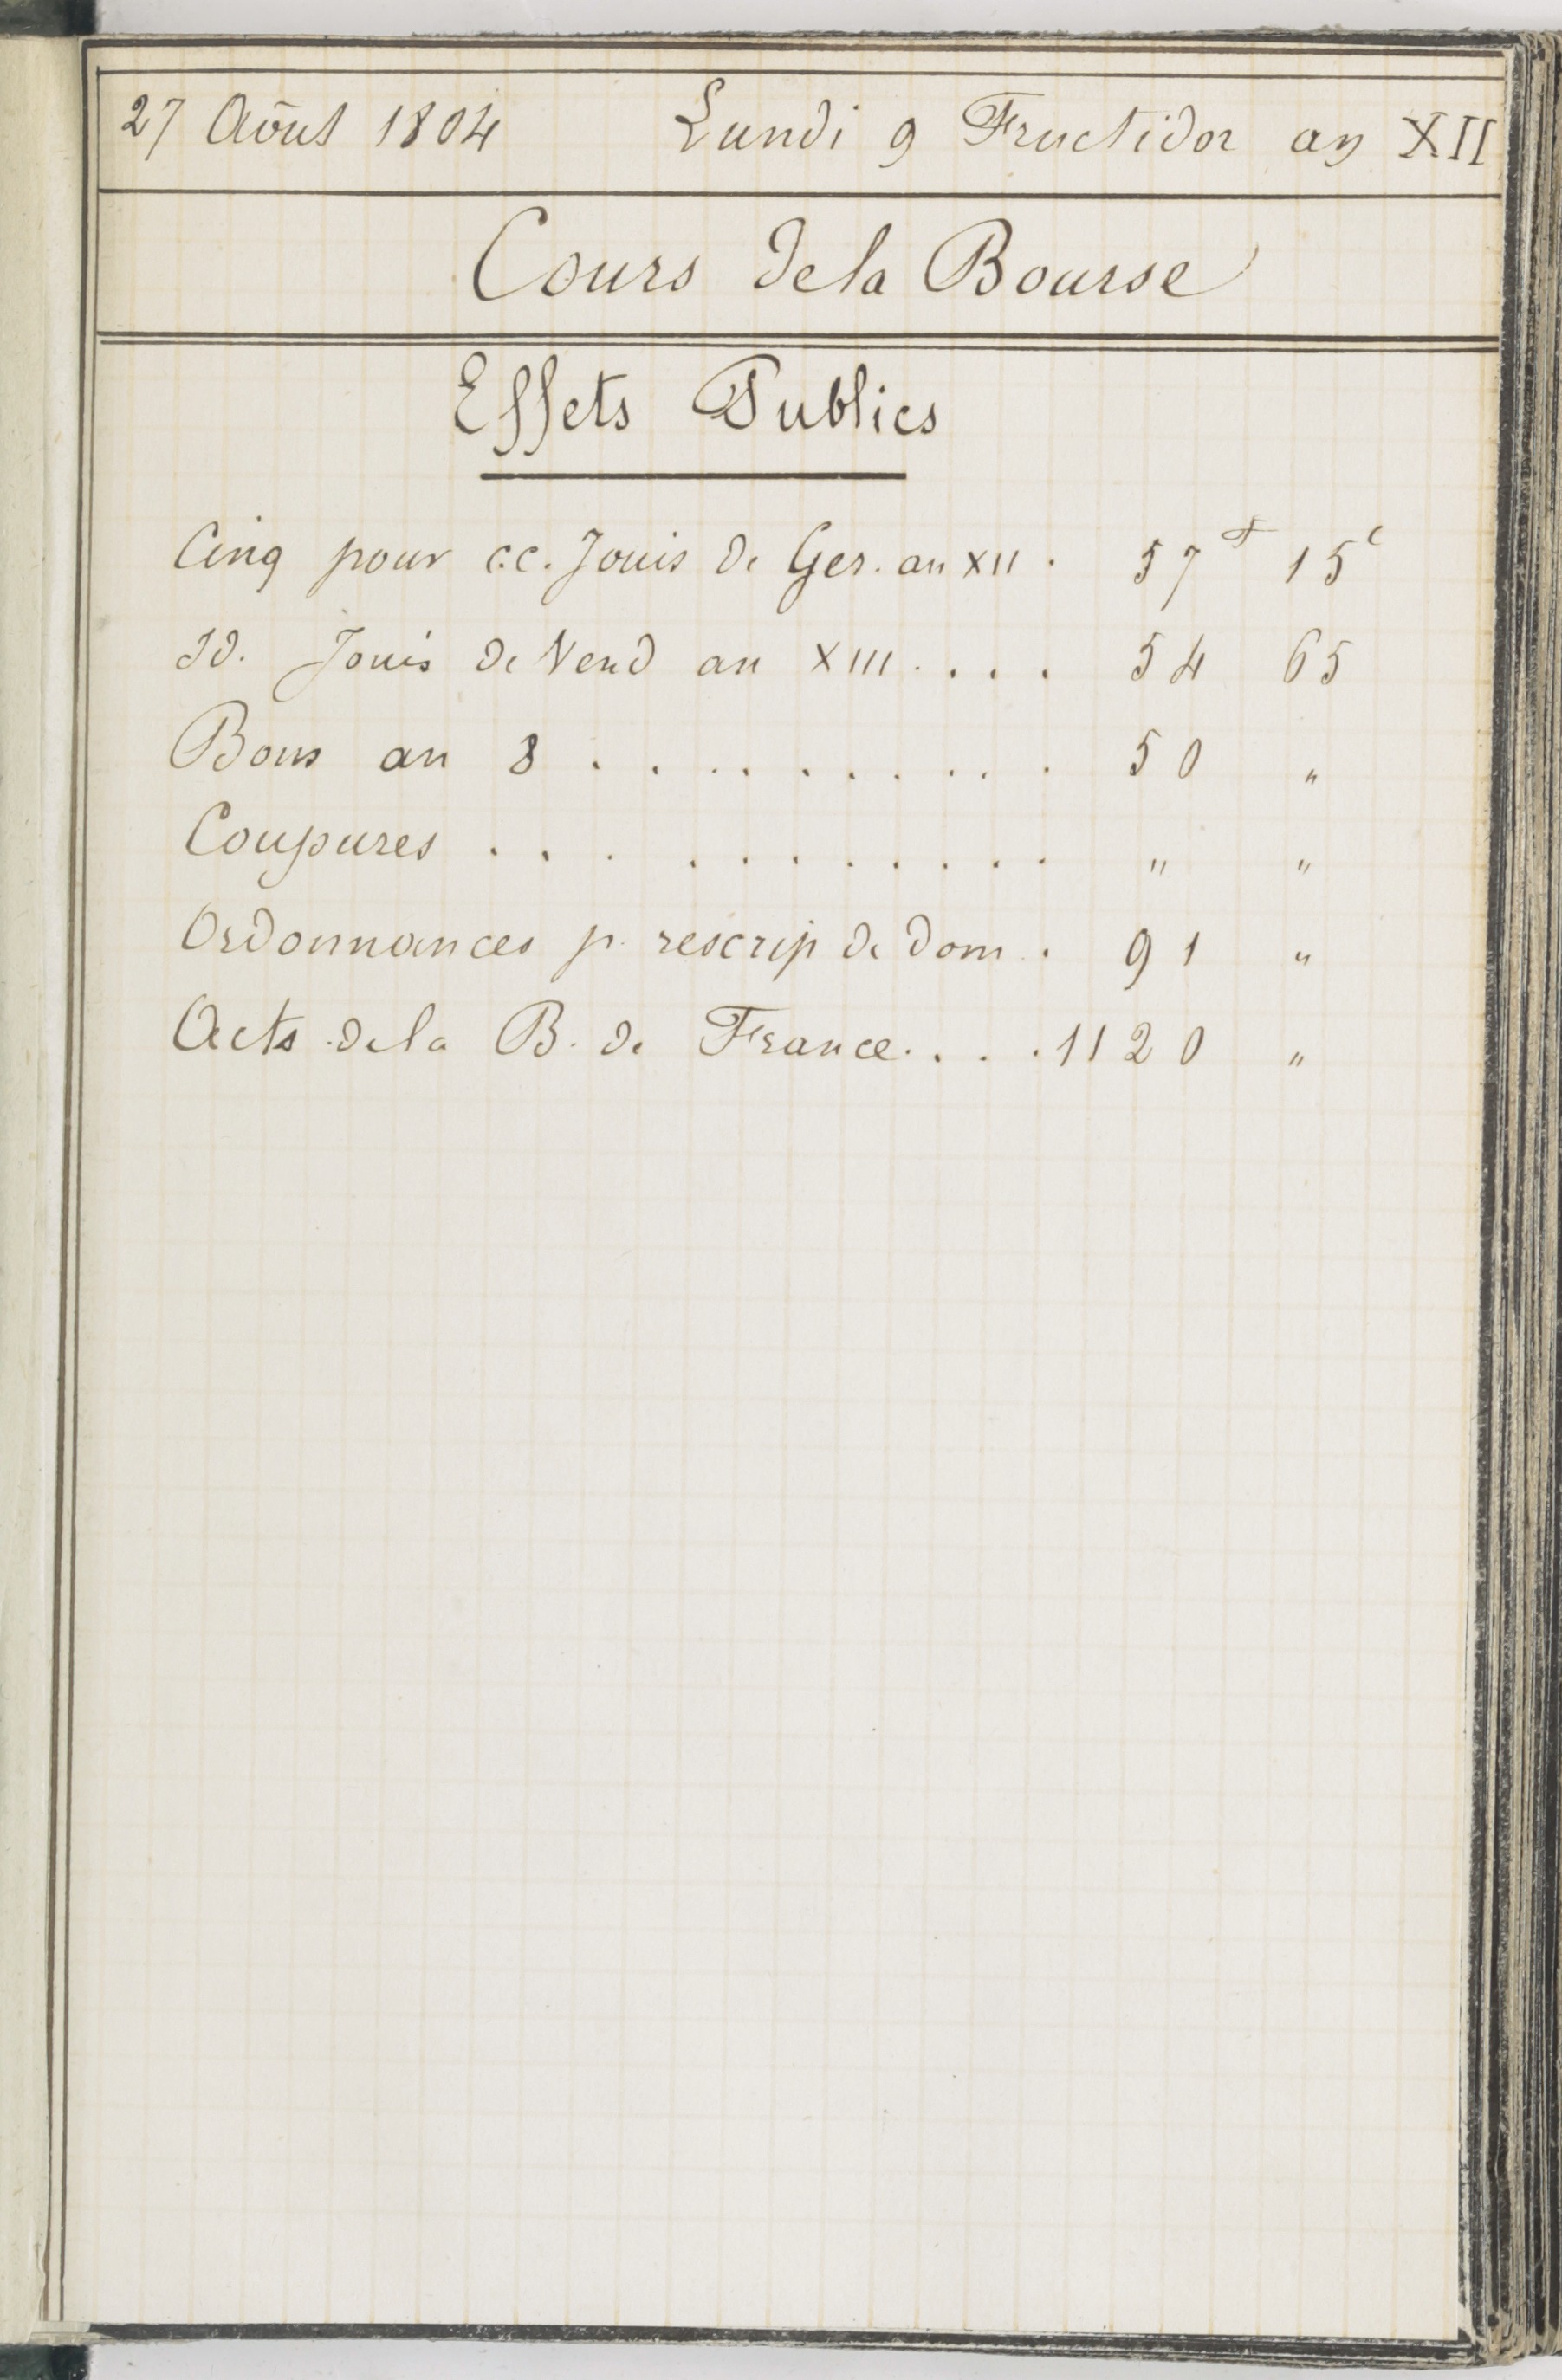 27 Août 1804 Lundi 9 Fructidor an XII
Cours de la Bourse
Effets Publics
Cinq pour c.c. Jouis de Ger. an XII . 57 F 15 c
Id. Jouis de Vend an XIII . . . . 54 65
Bons an 8 . . . . . . . . . . 50 "
Coupures . . . . . . . . . . . " "
Ordonnances p. rescrip de dom . 91 "
Acts de la B. de France . . . . 1120 "